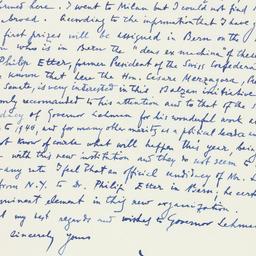 here. I went to Milan but I could not find
abroad. According to the information that I have
first prizes will be assigned in Bern on the
who is in Bern the "deus ex machina" of the
Philipp Etter, former President of the Swiss Confederation
known that here the Hon. Cesare Merzagora,
Senate, is very interested in this Balzan initiative
recommended to his attention and to that of the
of Governor Lehman for his wonderful work
to 1946, and for many other merits as a political leader
not know of course what will happen this year, being
with this new institution and they do not seem to
any rate I feel that an official
from N.Y. to Dr. Philipp Etter in Bern; he
prominent element in this new organization.
my best regards and wishes to Governor Lehman
Sincerely yours